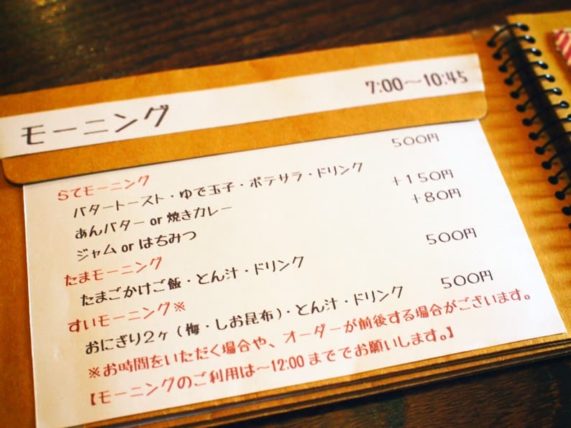 モーニング 7:00〜10:45
らてモーニング 500円
バタートースト・ゆで玉子・ポテサラ・ドリンク
あんバター or 焼きカレー +150円
ジャム or はちみつ +80円
たまモーニング 500円
たまごかけご飯・とん汁・ドリンク
すいモーニング※ 500円
おにぎり2ヶ(梅・しお昆布)・とん汁・ドリンク
※お時間をいただく場合や、オーダーが前後する場合がございます。
【モーニングのご利用は〜12:00まででお願いします。】